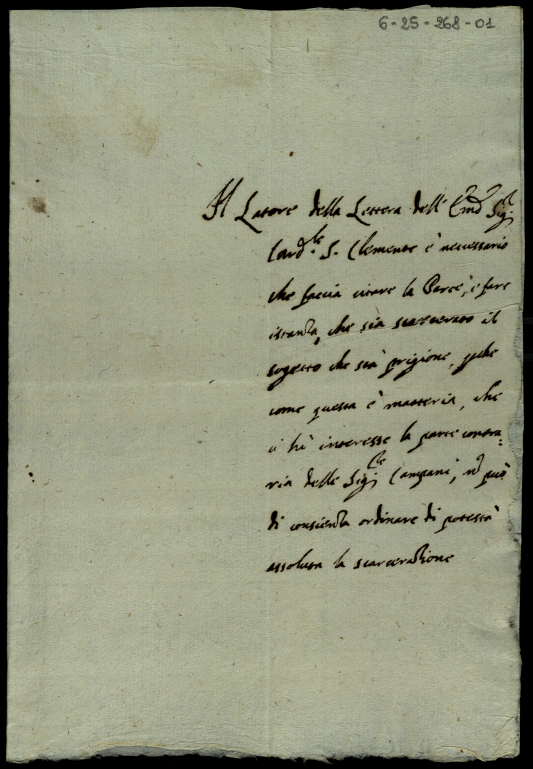 6-25-268-01
Il Latore della Lettera dell' Emo Sig.r
Card.le S. Clemente è necessario
che faccia citare la Parte, e fare
istanza, che sia scarcerato il
sogetto che stà prigione, perche
come questa è materia, che
ci hà interesse la parte contra:
ria delle Sig.re Campani, nõ può
di conscienza ordinare di potestà
assoluta la scarceratione